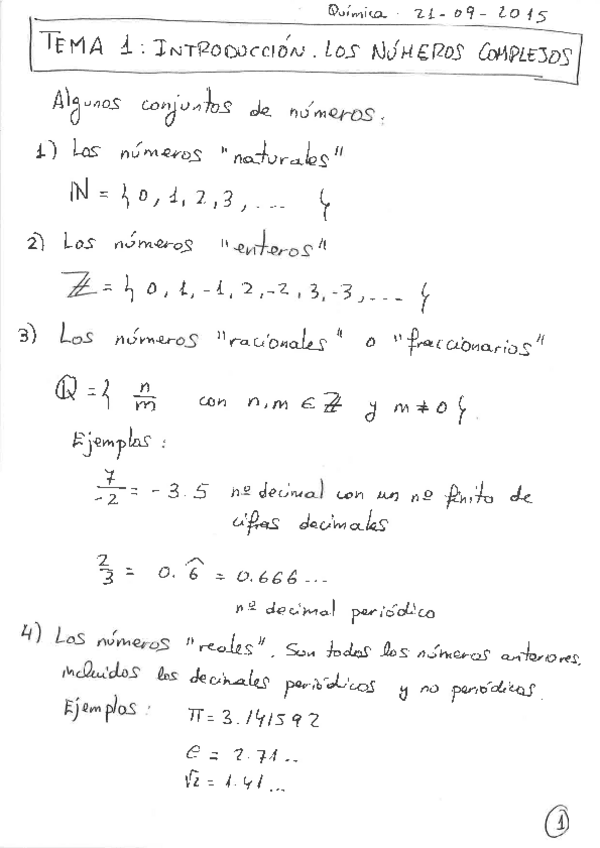 Química. 21-09-2015
TEMA 1: INTRODUCCIÓN. LOS NÚMEROS COMPLEJOS
Algunos conjuntos de números:
1) Los números "naturales"
ℕ = { 0, 1, 2, 3, ... }
2) Los números "enteros"
ℤ = { 0, 1, -1, 2, -2, 3, -3, ... }
3) Los números "racionales" o "fraccionarios"
ℚ = { n/m con n, m ∈ ℤ y m ≠ 0 }.
Ejemplos:
7/-2 = -3.5 nº decimal con un nº finito de
cifras decimales
2/3 = 0.6̂ = 0.666...
nº decimal periódico
4) Los números "reales". Son todos los números anteriores,
incluidos los decimales periódicos y no periódicos.
Ejemplos: π = 3.141592
e = 2.71..
√2 = 1.41...
1